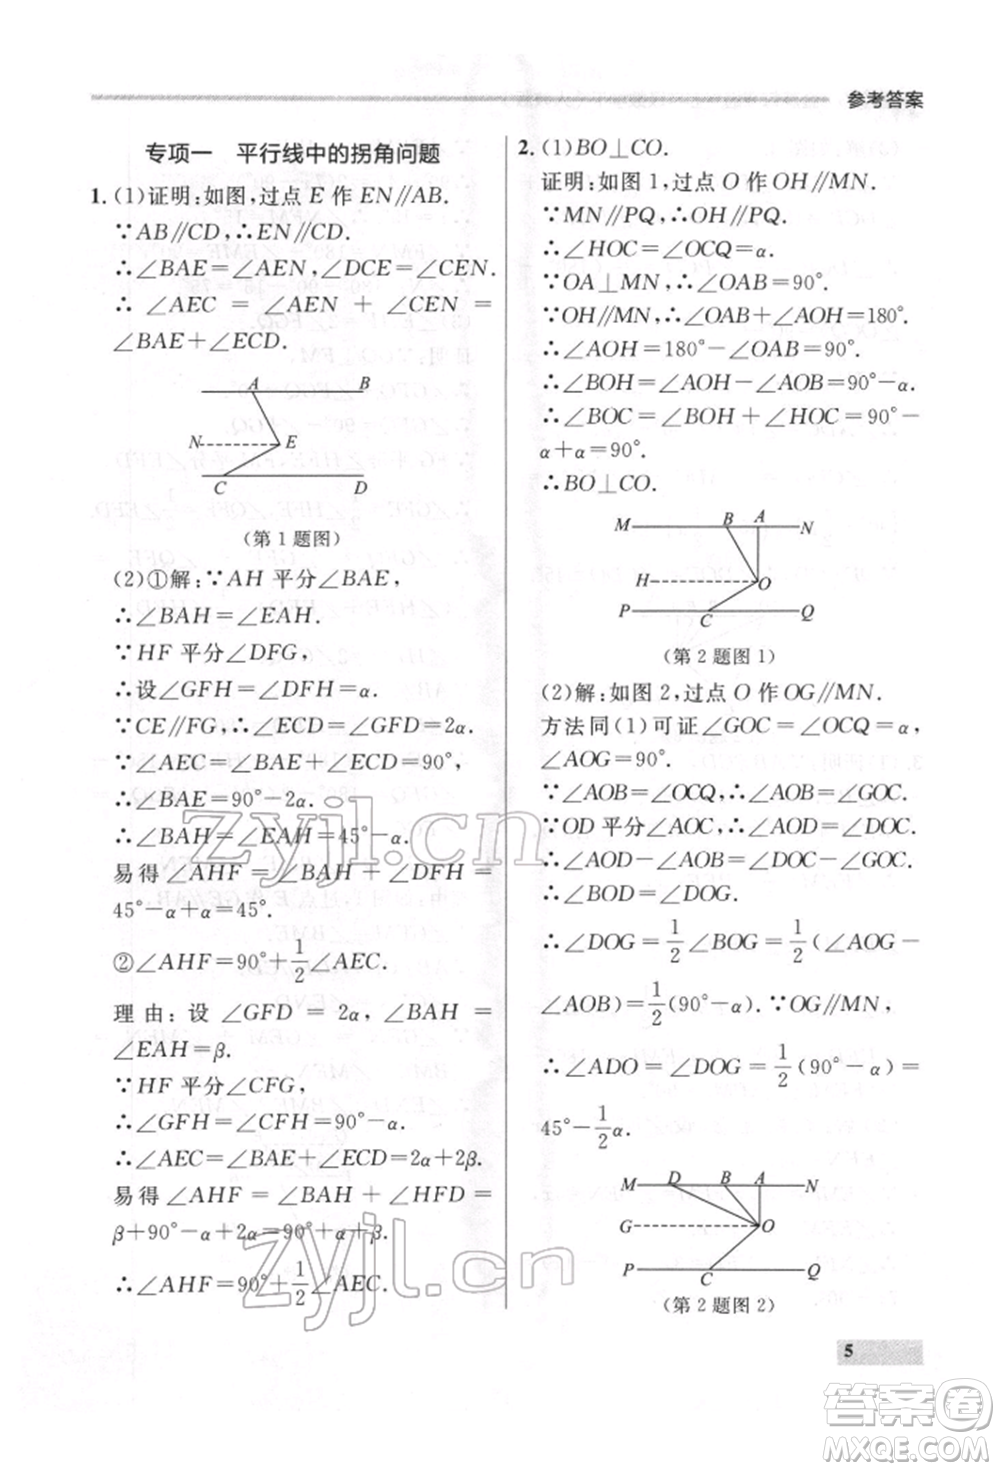 参考答案
专项一 平行线中的拐角问题
1. (1)证明:如图,过点 E 作 EN∥AB.
∵AB∥CD,∴EN∥CD.
∴∠BAE=∠AEN,∠DCE=∠CEN.
∴∠AEC=∠AEN+∠CEN=
∠BAE+∠ECD.
A B
N E
C D
(第 1 题图)
(2)①解:∵AH 平分∠BAE,
∴∠BAH=∠EAH.
∵HF 平分∠DFG,
∴设∠GFH=∠DFH=α.
∵CE∥FG,∴∠ECD=∠GFD=2α.
∵∠AEC=∠BAE+∠ECD=90°,
∴∠BAE=90°-2α.
∴∠BAH=∠EAH=45°-α.
易得∠AHF=∠BAH+∠DFH=
45°-α+α=45°.
②∠AHF=90°+1/2∠AEC.
理由:设∠GFD=2α,∠BAH=
∠EAH=β.
∵HF 平分∠CFG,
∴∠GFH=∠CFH=90°-α.
∴∠AEC=∠BAE+∠ECD=2α+2β.
易得∠AHF=∠BAH+∠HFD=
β+90°-α+2α=90°+α+β.
∴∠AHF=90°+1/2∠AEC.
2. (1)BO⊥CO.
证明:如图 1,过点 O 作 OH∥MN.
∵MN∥PQ,∴OH∥PQ.
∴∠HOC=∠OCQ=α.
∵OA⊥MN,∴∠OAB=90°.
∵OH∥MN,∴∠OAB+∠AOH=180°.
∴∠AOH=180°-∠OAB=90°.
∴∠BOH=∠AOH-∠AOB=90°-α.
∴∠BOC=∠BOH+∠HOC=90°-
α+α=90°.
∴BO⊥CO.
M B A N
H O
P C Q
(第 2 题图 1)
(2)解:如图 2,过点 O 作 OG∥MN.
方法同(1)可证∠GOC=∠OCQ=α,
∠AOG=90°.
∵∠AOB=∠OCQ,∴∠AOB=∠GOC.
∵OD 平分∠AOC,∴∠AOD=∠DOC.
∴∠AOD-∠AOB=∠DOC-∠GOC.
∴∠BOD=∠DOG.
∴∠DOG=1/2∠BOG=1/2(∠AOG-
∠AOB)=1/2(90°-α).∵OG∥MN,
∴∠ADO=∠DOG=1/2(90°-α)=
45°-1/2α.
M D B A N
G O
P C Q
(第 2 题图 2)
5
zyjl.cn
zyjl.cn
答案圈
MXQE.COM